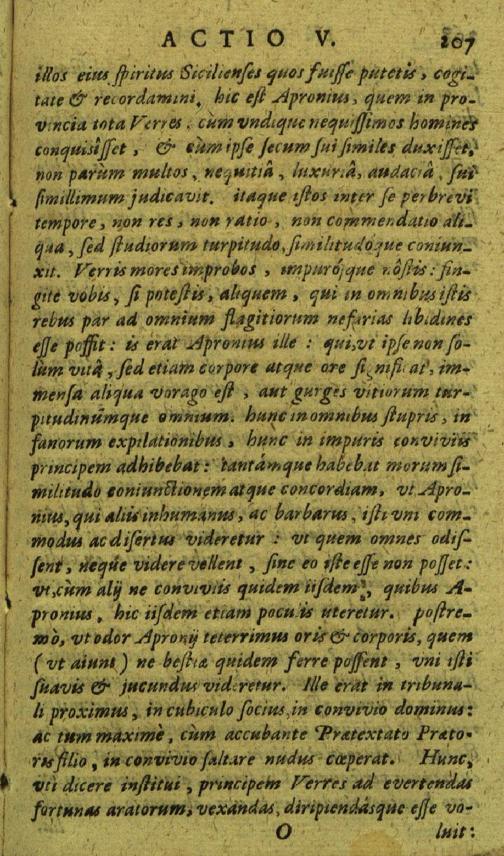 ACTIO V. 207
illos eius spiritus Sicilienses quos fuisse putetis, cogi-
tate & recordamini. hic est Apronius, quem in pro-
vincia tota Verres, cùm vndique nequissimos homines
conquisisset, & cùm ipse secum sui similes duxisset,
non parùm multos, nequitiâ, luxuriâ, audaciâ, sui
simillimum judicavit. itaque istos inter se perbrevi
tempore, non res, non ratio, non commendatio ali-
qua, sed studiorum turpitudo, similitudóque coniun-
xit. Verris mores improbos, impurósque nôstis: fin-
gite vobis, si potestis, aliquem, qui in omnibus istis
rebus par ad omnium flagitiorum nefarias libidines
esse possit: is erat Apronius ille: qui, vt ipse non so-
lùm vitâ, sed etiam corpore atque ore significat, im-
mensa aliqua vorago est, aut gurges vitiorum tur-
pitudinúmque omnium. hunc in omnibus stupris, in
fanorum expilationibus, hunc in impuris conviviis
principem adhibebat: tantámque habebat morum si-
militudo coniunctionem atque concordiam, vt Apro-
nius, qui aliis inhumanus, ac barbarus, isti vni com-
modus ac disertus videretur: vt quem omnes odis-
sent, neque videre vellent, sine eo iste esse non posset:
vt, cùm alij ne conviviis quidem iisdem, quibus A-
pronius, hic iisdem etiam poculis uteretur. postre-
mò, vt odor Apronij teterrimus oris & corporis, quem
(vt aiunt) ne bestiæ quidem ferre possent, vni isti
suavis & jucundus videretur. Ille erat in tribuna-
li proximus, in cubiculo socius, in convivio dominus:
ac tum maximè, cùm accubante Prætextato Præto-
ris filio, in convivio saltare nudus cœperat. Hunc,
vti dicere institui, principem Verres ad evertendas
fortunas aratorum, vexandas, diripiendásque esse vo-
O luit: